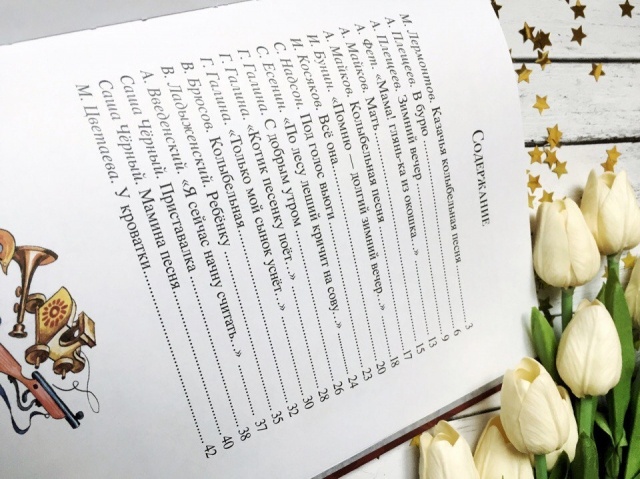 СОДЕРЖАНИЕ
М. Лермонтов. Казачья колыбельная песня 3
А. Плещеев. В бурю 6
А. Плещеев. Зимний вечер 9
А. Фет. «Мама! глянь-ка из окошка...» 13
А. Майков. Мать 15
А. Майков. Колыбельная песня 17
И. Бунин. «Помню — долгий зимний вечер...» 18
И. Косяков. Всё она 20
С. Надсон. Под голос вьюги 23
С. Есенин. «По лесу леший кричит на сову...» 24
Г. Галина. С добрым утром 26
Г. Галина. «Котик песенку поёт...» 28
Г. Галина. «Только мой сынок уснёт...» 30
В. Брюсов. Колыбельная 32
В. Ладыженский. Ребёнку 35
А. Введенский. «Я сейчас начну считать...» 37
Саша Чёрный. Приставалка 38
Саша Чёрный. Мамина песня 40
М. Цветаева. У кроватки 42